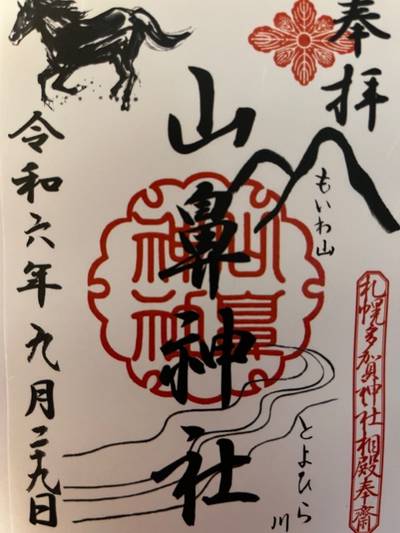 奉拝
もいわ山
札幌多賀神社相殿奉齋
とよひら川
山鼻神社
山鼻神社
令和六年九月二十九日